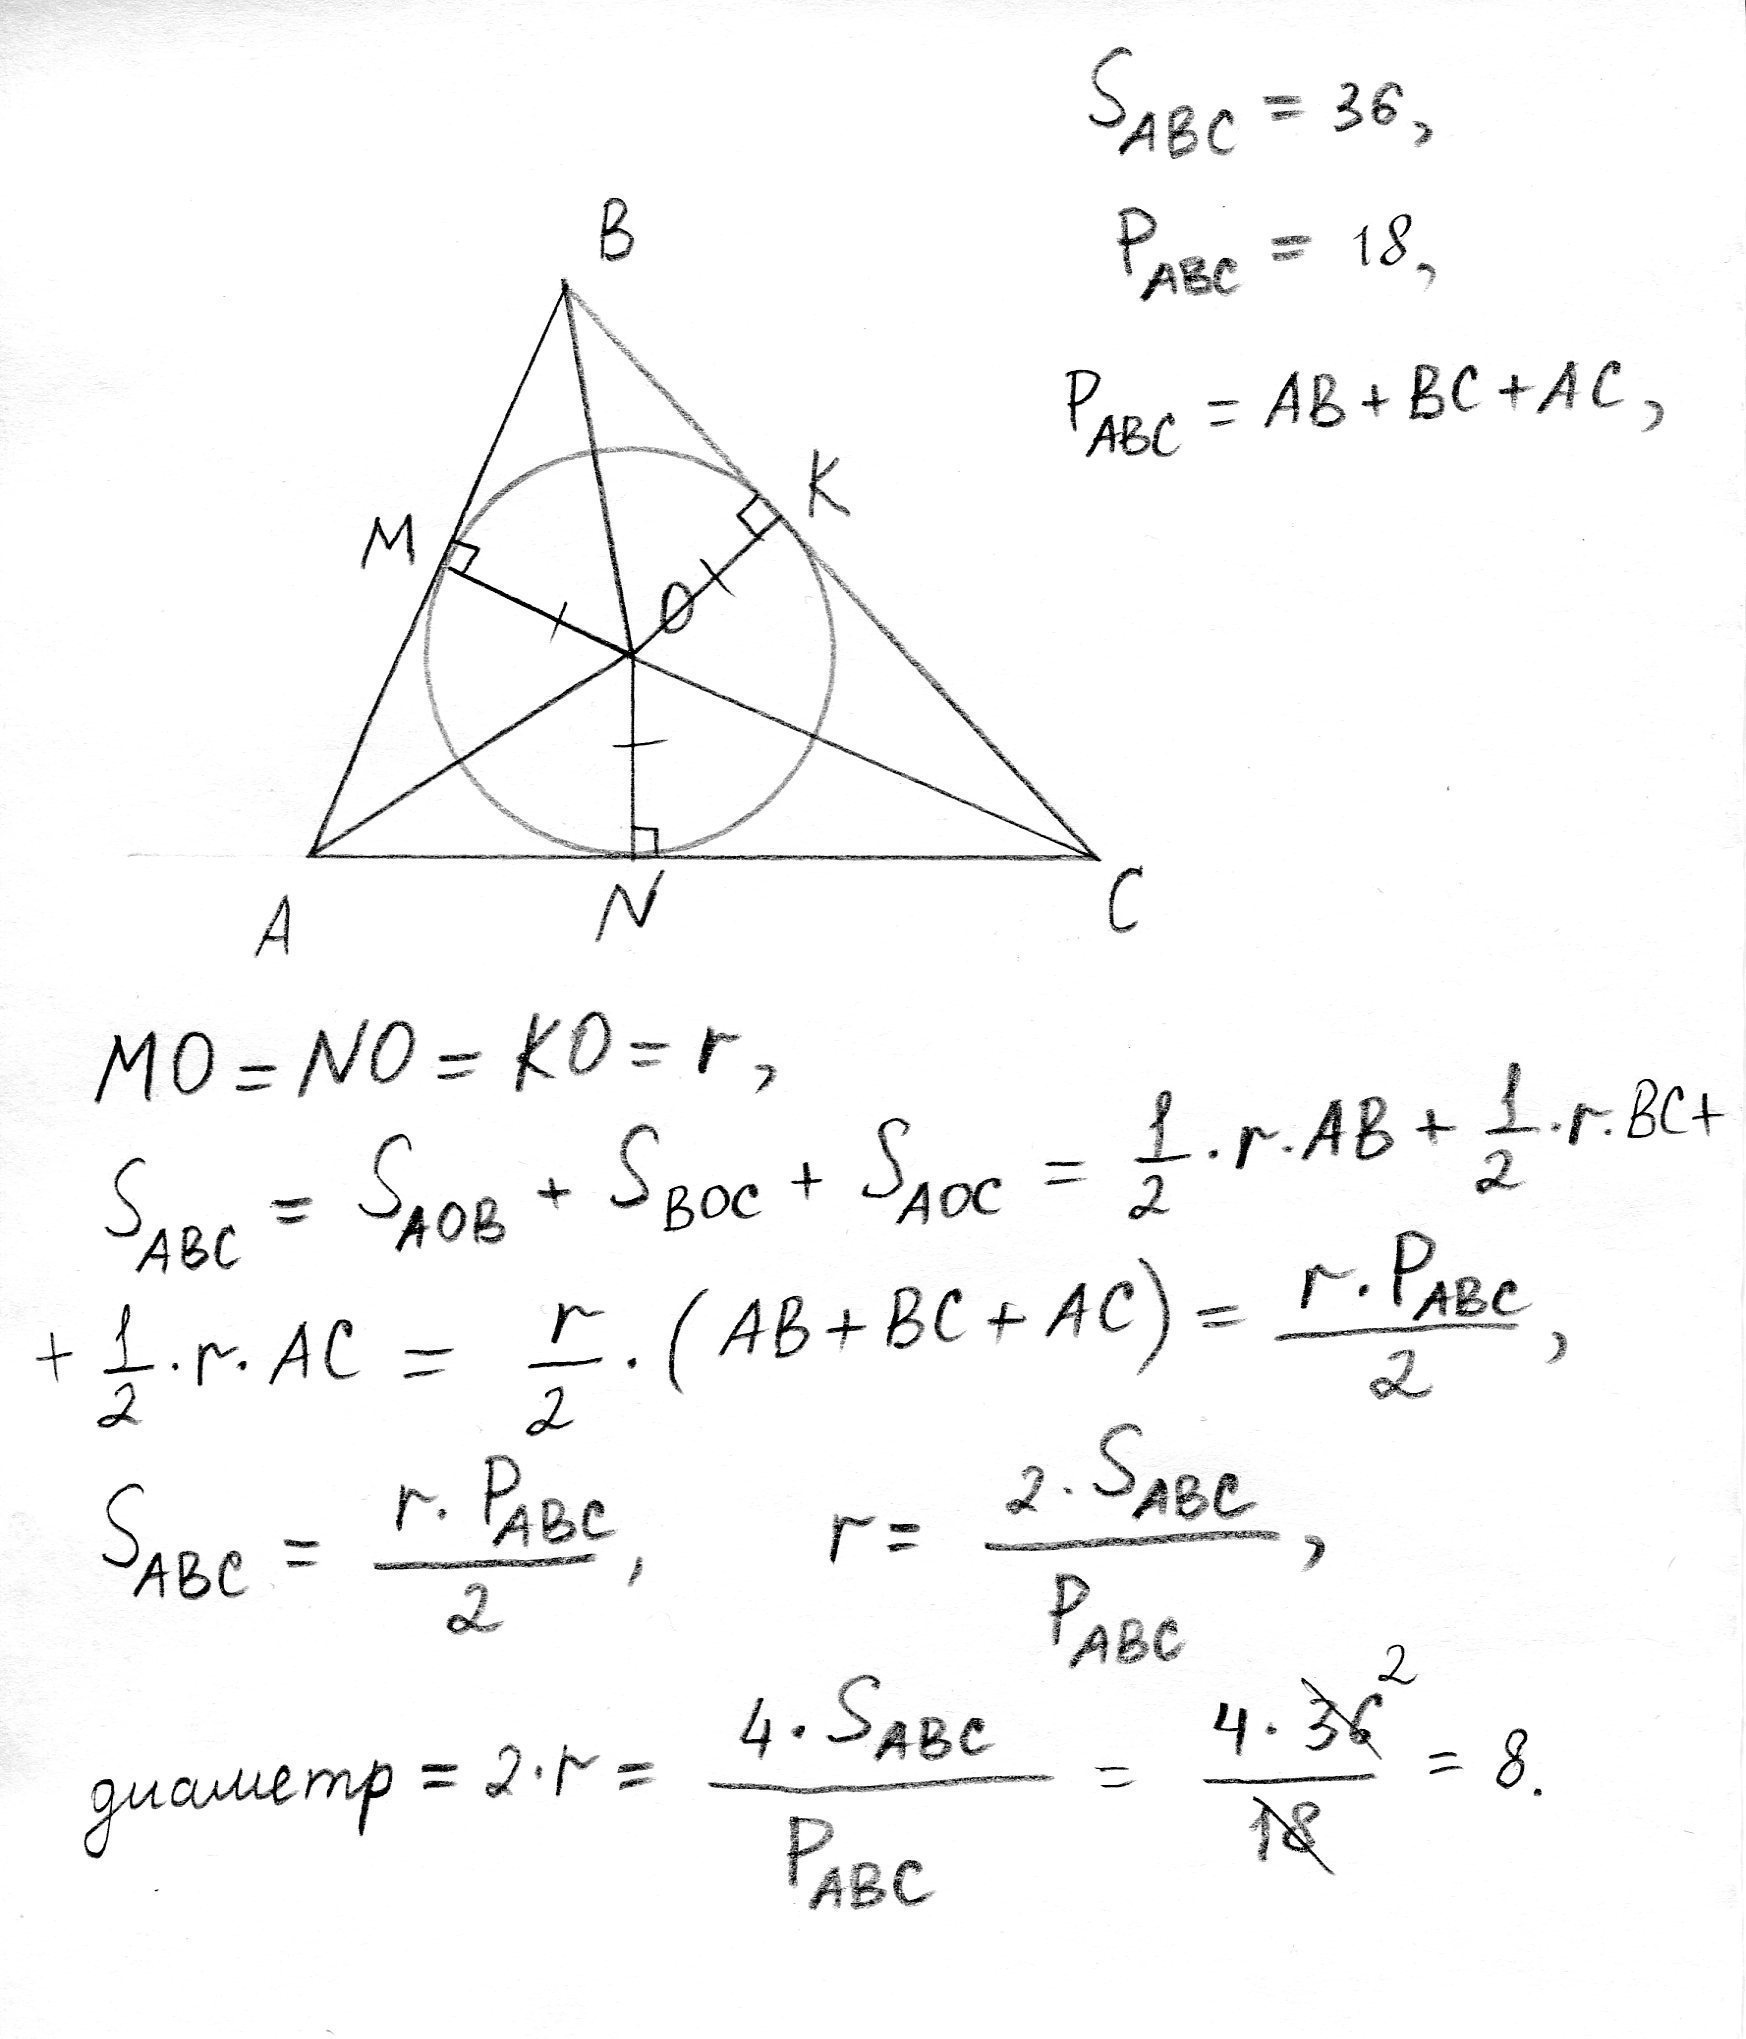 S_ABC = 36,
P_ABC = 18,
P_ABC = AB + BC + AC,
B
K
M
O
A
N
C
MO = NO = KO = r,
S_ABC = S_AOB + S_BOC + S_AOC = 1/2 · r · AB + 1/2 · r · BC +
+ 1/2 · r · AC = r/2 · (AB + BC + AC) = r · P_ABC / 2,
S_ABC = r · P_ABC / 2, r = 2 · S_ABC / P_ABC,
диаметр = 2 · r = 4 · S_ABC / P_ABC = 4 · 36 2 / 18 = 8.